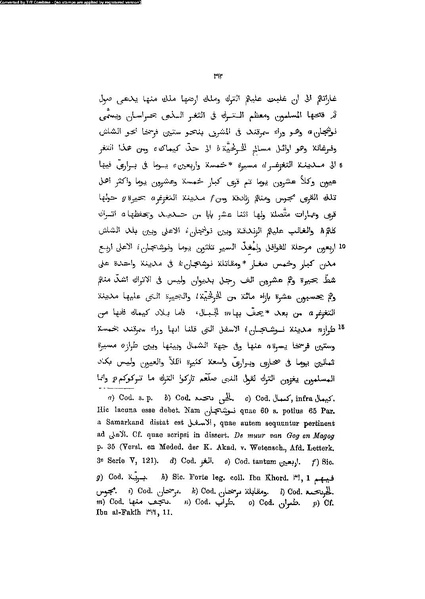 Converted by Tiff Combine - (no stamps are applied by registered version)
٢٦٢
غاراتهم الى ان غلبت عليهم الترك وملك ارضها ملك منها يدعى صول
ثم فتحها المسلمون ومعظم الترك فى الثغر الذى بخراسان ويسمّى
نوشجان وهو وراء سمرقند فى المشرق بنحو ستين فرسخا نحو الشاش
وفرغانة وهو اوائل مسالح الخرلخيّة الى حدّ كيماك ومن هذا الثغر
5 الى مدينة التغزغز مسيرة *خمسة واربعين يوما فى برارىّ فيها
عيون وكلأ عشرون يوما ثم قرى كبار خمسة وعشرون يوما واكثر اهل
تلك القرى مجوس ومنهم زنادقة ومن مدينة التغزغز بحيرة حولها
قرى وعمارات متّصلة ولها اثنا عشر بابا من حديد ويحفظها اتراك
كلهم والغالب عليهم الزندقة وبين نوشجان الاعلى وبين بلد الشاش
10 اربعون مرحلة للقوافل ولمغذّ السير ثلثون يوما ونوشجان الاعلى اربع
مدن كبار وخمس صغار *ومقاتلة نوشجان فى مدينة واحدة على
شطّ بحيرة وهم عشرون الف رجل بديوان وليس فى الاتراك اشدّ منهم
وهم يحسبون عشرة بازاء مائة من الخرلخيّة والبحيرة التى عليها مدينة
التغزغز من بعد *يحفّ بها الجبال فاما بلاد كيماك فانها من
15 طراز مدينة نوشجان الاسفل التى قلنا انها وراء سمرقند بخمسة
وستين فرسخا يسرة عنها فى جهة الشمال وبينها وبين طراز مسيرة
ثمانين يوما فى صحارى وبرارىّ واسعة كثيرة الكلأ والعيون وليس يكاد
المسلمون يغزون الترك لقول النبى صلّعم تاركوا الترك ما تركوكم وانما
a) Cod. s. p. b) Cod. c) Cod. infra كيمال.
Hic lacuna esse debet. Nam نوشجان quae 60 s. potius 65 Par.
a Samarkand distat est الاسفل, quae autem sequuntur pertinent
ad الاعلى. Cf. quae scripsi in dissert. De muur van Gog en Magog
p. 35 (Verst. en Meded. der K. Akad. v. Wetensch., Afd. Letterk.
3e Serie V, 121). d) Cod. e) Cod. tantum اربعين. f) Sic.
g) Cod. h) Sic. Forte leg. coll. Ibn Khord. ٣١, 1 فيهم
i) Cod. j) Cod. k) Cod. l) Cod.
m) Cod. n) Cod. o) Cod. p) Cf.
Ibn al-Fakîh ٣١٦, 11.